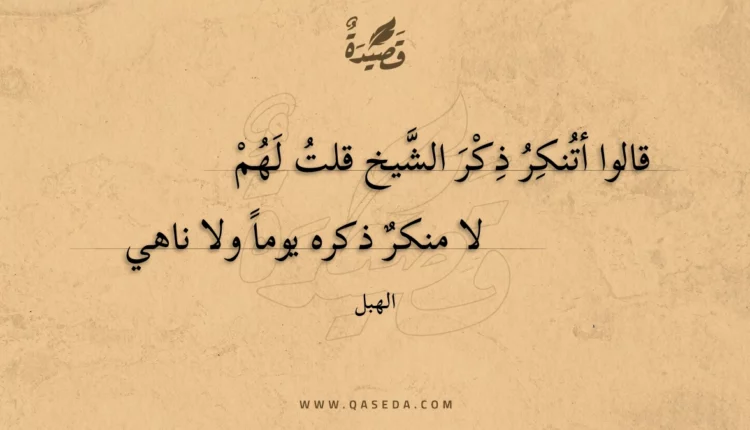 قَصِيْدَةٌ
قالوا أتُنكِرُ ذِكْرَ الشَّيخ قلتُ لَهُمْ
لا منكرٌ ذكره يوماً ولا ناهي
الهبل
WWW.QASEDA.COM